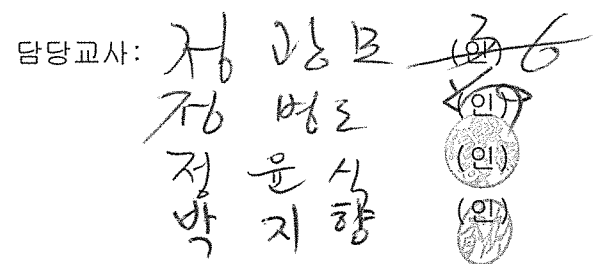 담당교사: 정 광 모 (인)
정 병 도 (인)
정 윤 식 (인)
박 지 향 (인)